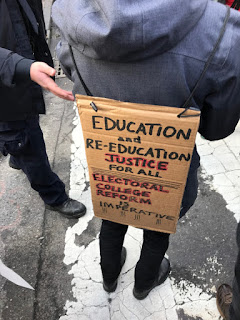 EDUCATION
and
RE-EDUCATION
JUSTICE
FOR ALL
ELECTORAL
COLLEGE
REFORM
IS
IMPERATIVE
!!! !!! !!!